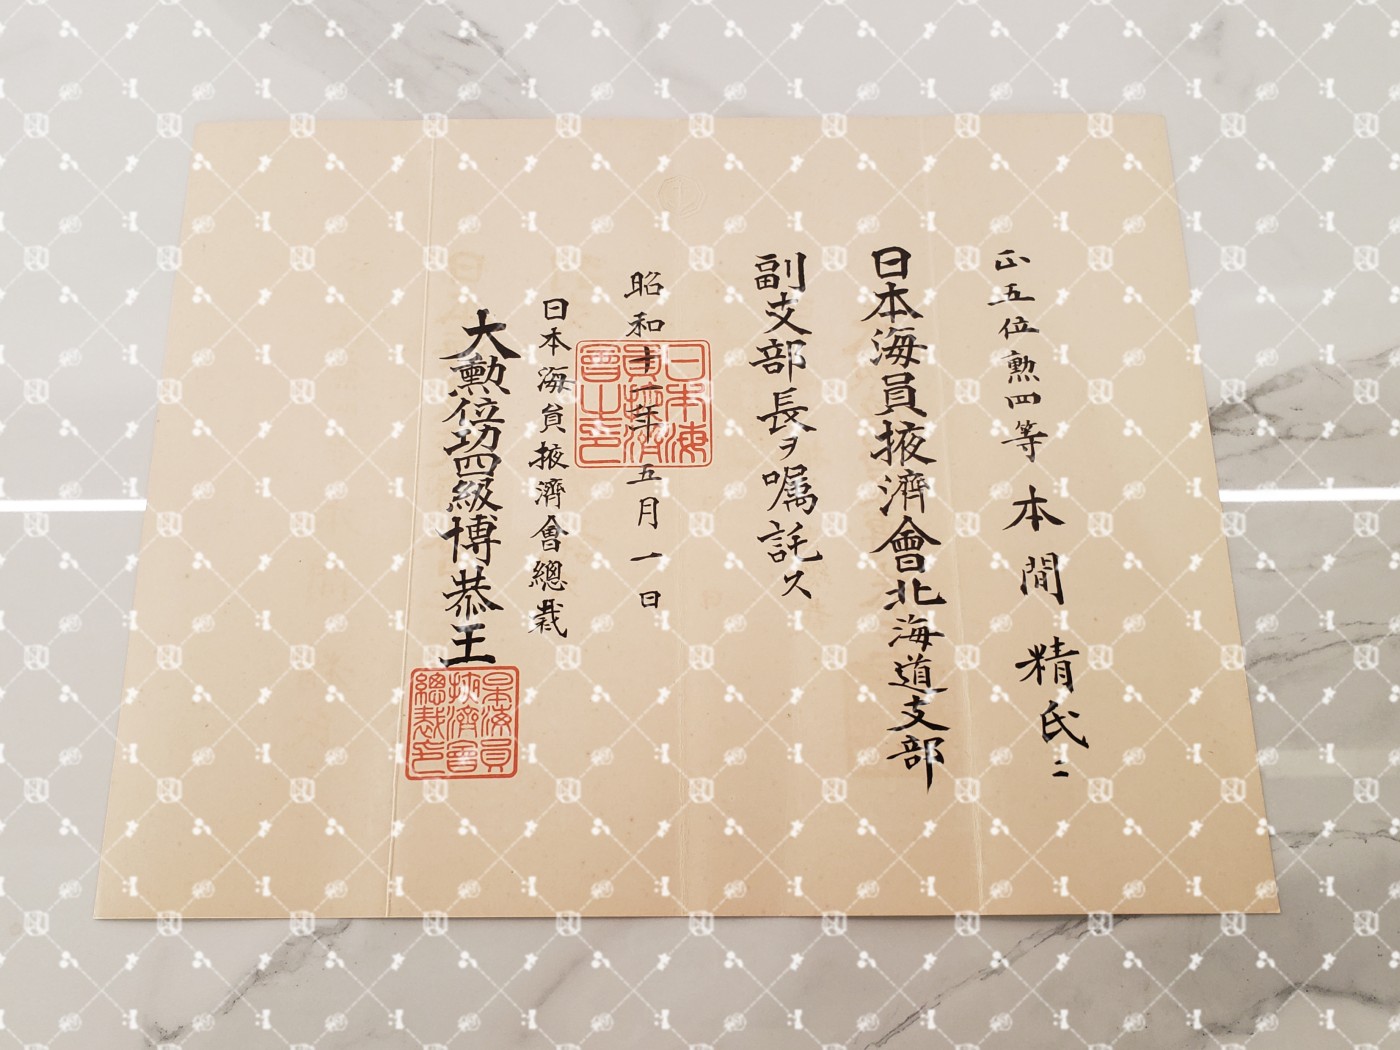 正五位勲四等 本間 精氏ニ
日本海員掖濟會北海道支部
副支部長ヲ嘱託ス
昭和十一年五月一日
日本海員掖濟會之印
日本海員掖濟會總裁
大勲位功四級博恭王
日本海員掖濟會總裁之印